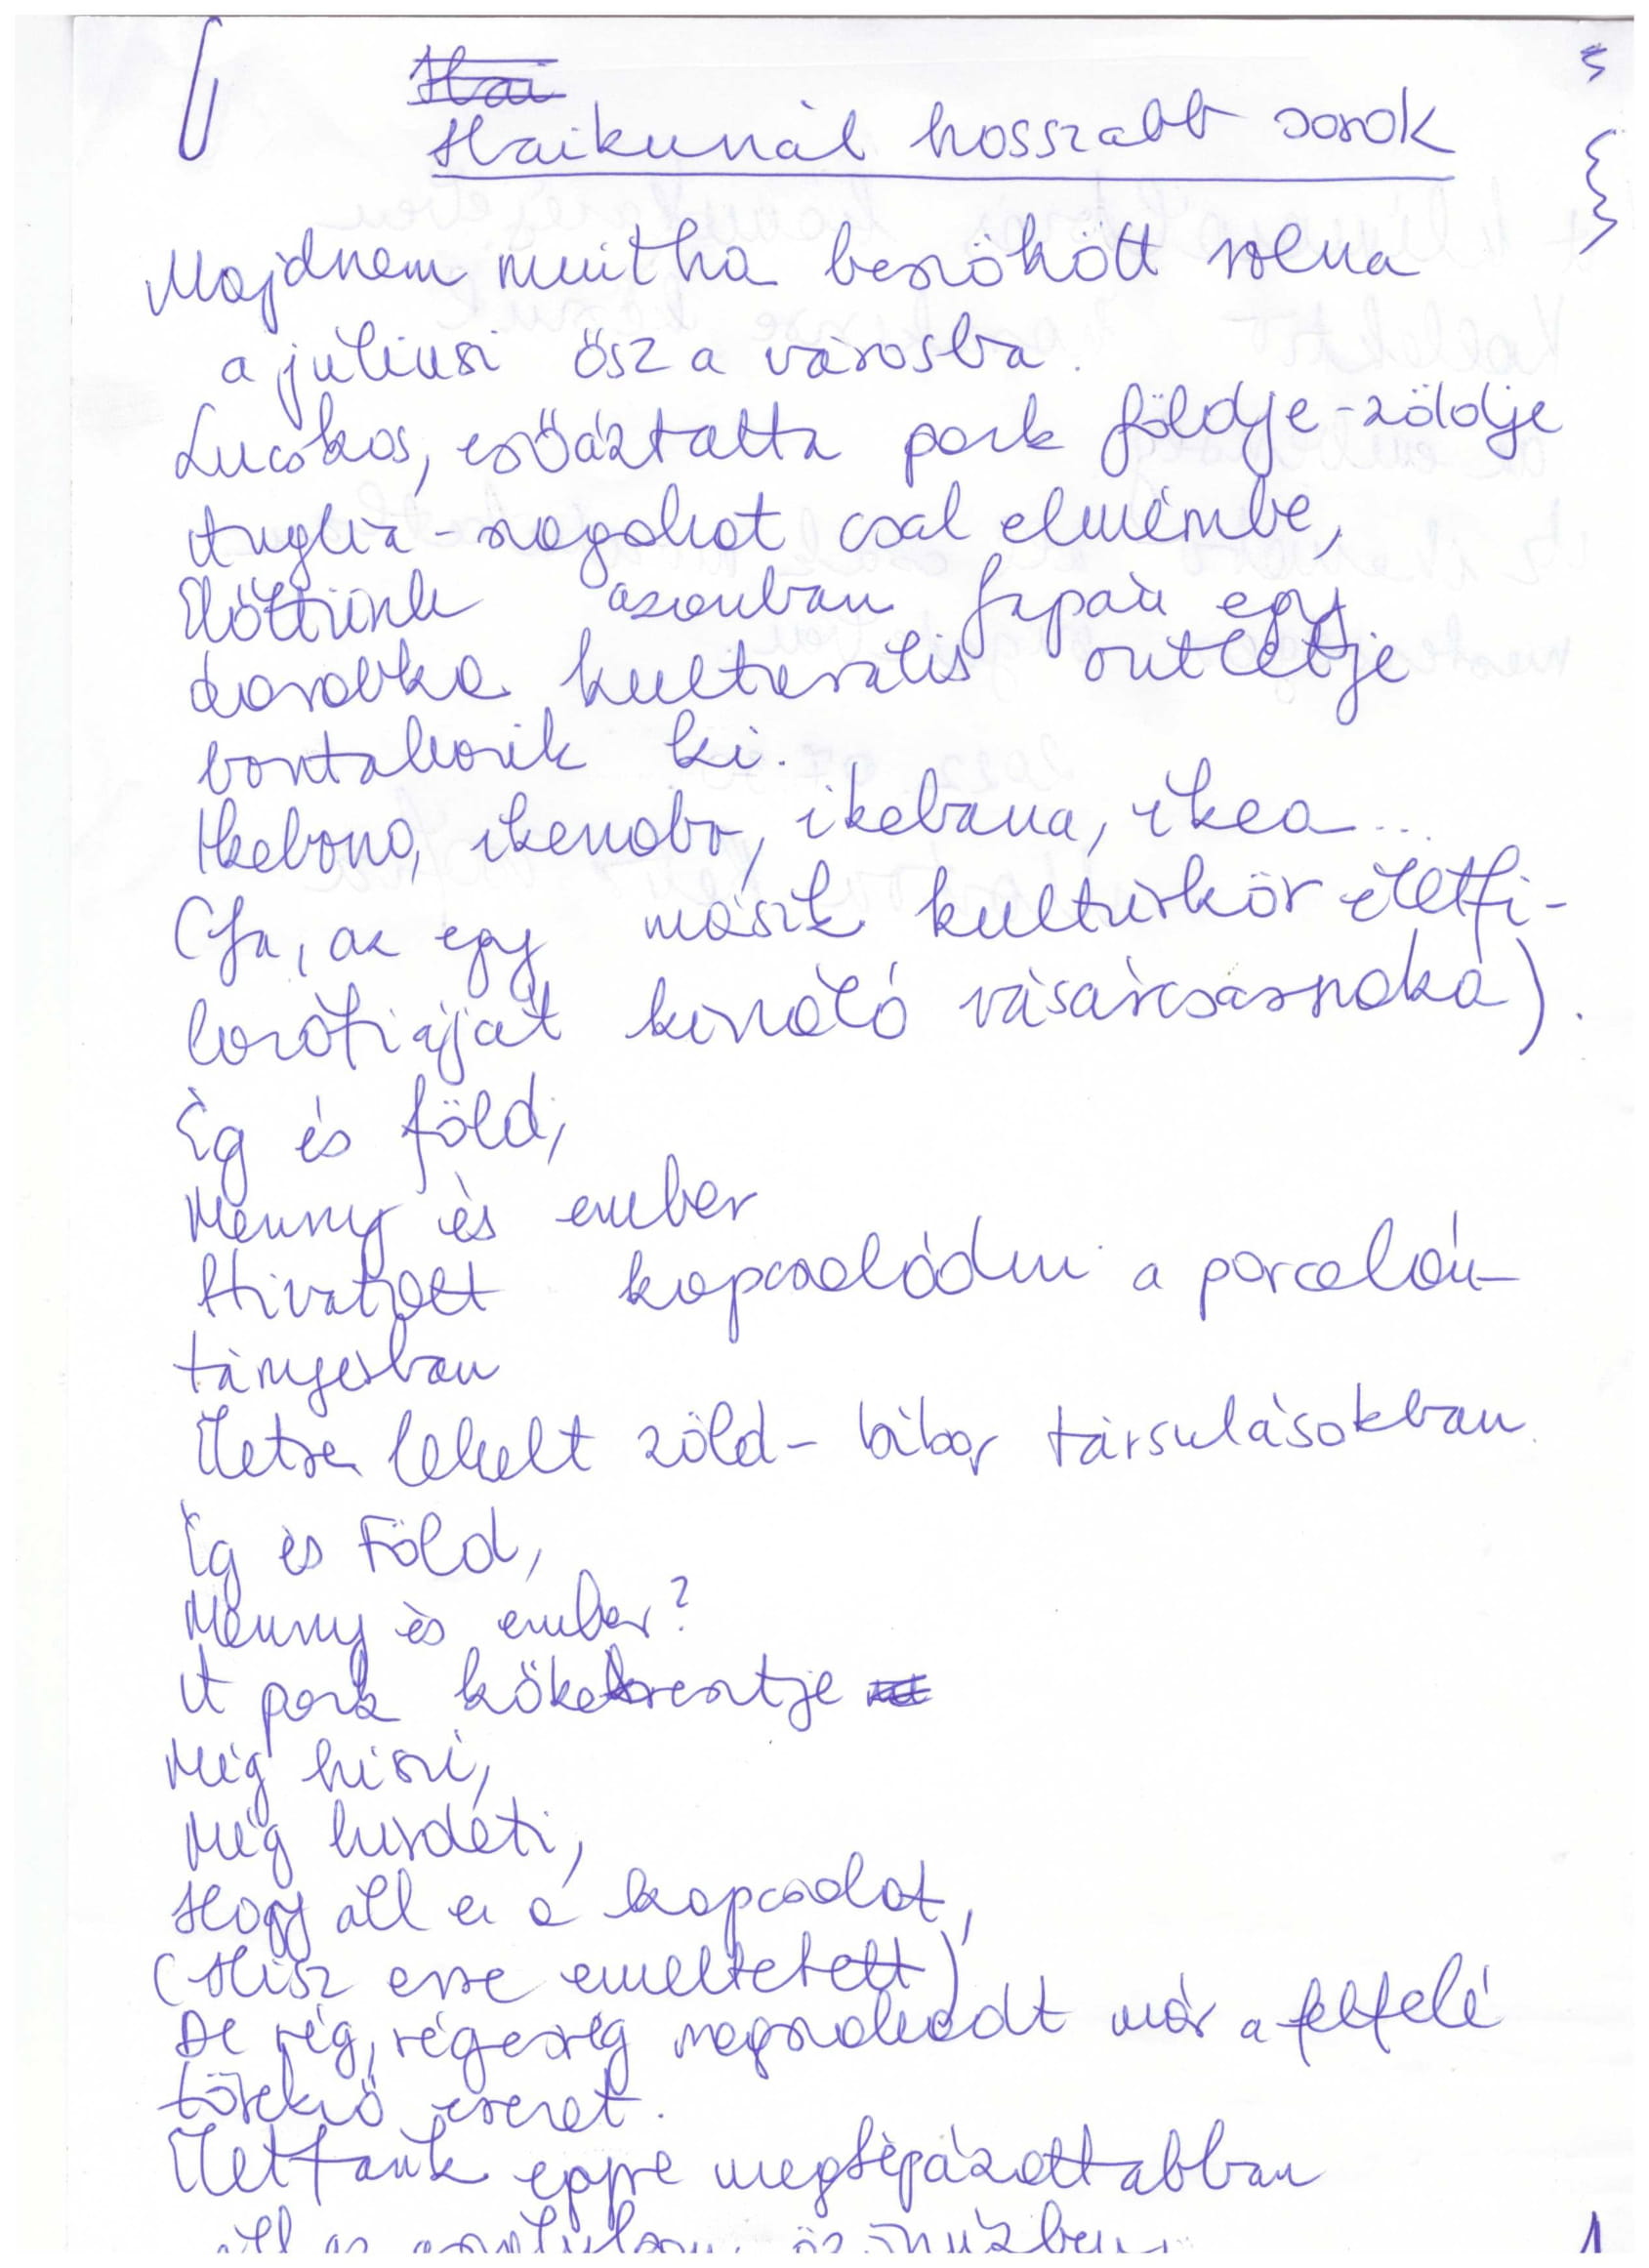 Haikunál hosszabb sorok
Majdnem mintha beszökött volna
a júliusi ősz a városba.
Lucskos, esőáztatta park földje-zöldje
Anglia-szagokat csal elmémbe,
Előttünk azonban Japán egy
darabka kulturális outletje
bontakozik ki.
Ikebono, ikenobo, ikebana, ikea...
(Ja, az egy másik kultúrkör életfi-
lozófiáját kínáló vásárcsarnoka).
Ég és föld,
Menny és ember
Hivatott kapcsolódni a porcelán-
tányérban
Életre lehelt zöld-bíbor társulásokban.
Ég és Föld,
Menny és ember?
A park kőkeresztje
Még hiszi,
Még hirdeti,
Hogy áll ez a kapcsolat,
(Hisz erre emeltetett)
De rég, réges-rég megszakadt már a felfelé
törekvő ereret.
Életfánk egyre megtépázottabban
áll az
1